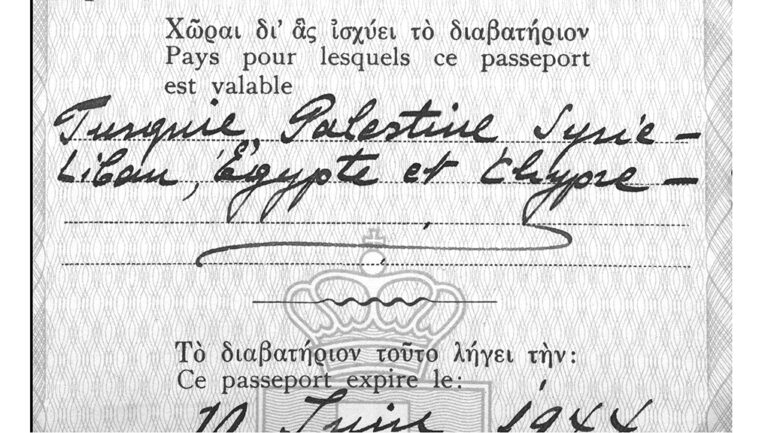 Χῶραι δι' ἃς ἰσχύει τὸ διαβατήριον
Pays pour lesquels ce passeport
est valable
Turquie, Palestine Syrie –
Liban, Égypte et Chypre –
Τὸ διαβατήριον τοῦτο λήγει τὴν:
Ce passeport expire le:
Juin 1944